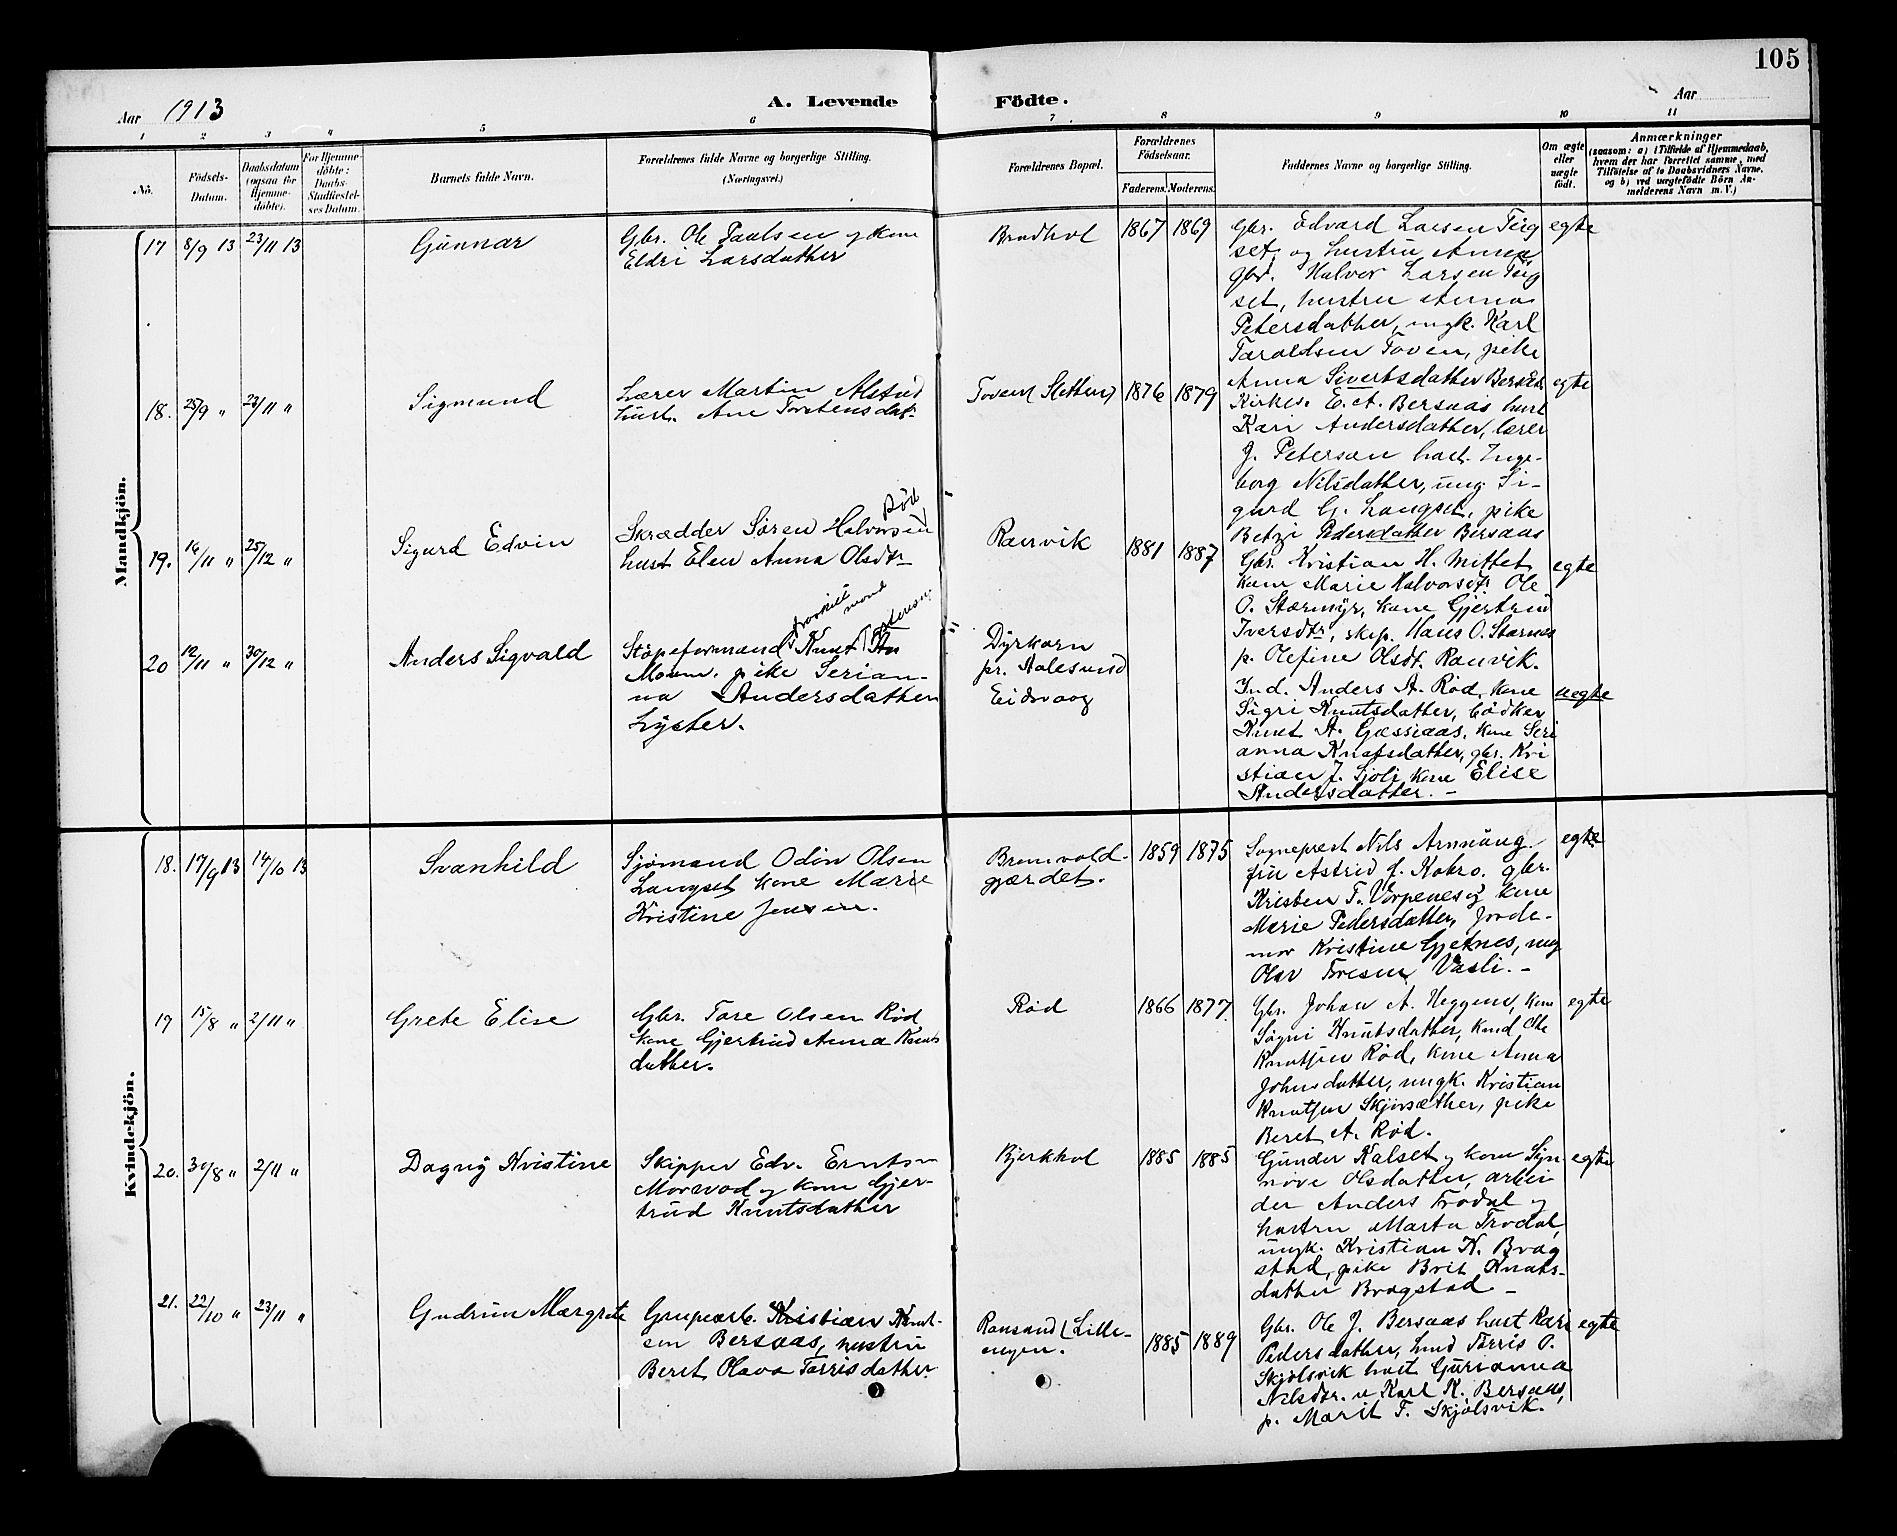 105
Aar 1913
A. Levende Födte.
Aar
1 2 3 4 5 6 7 8 9 10 11
No.
Födsels-Datum.
Daabsdatum (ogsaa for Hjemme-döbte).
For Hjemme-döbte: Daabs-Stadfæstel-ses Datum.
Barnets fulde Navn.
Forældrenes fulde Navne og borgerlige Stilling. (Næringsvei.)
Forældrenes Bopæl.
Forældrenes Födselsaar.
Faderens. Moderens.
Faddernes Navne og borgerlige Stilling.
Om ægte eller uægte födt.
Anmærkninger
(saasom: a) i Tilfælde af Hjemmedaab, hvem der har forrettet samme, med Tilföielse af to Daabsvidners Navne, og b) ved uægtefödte Börn An-melderens Navn m. V.)
Mandkjön.
17 8/9 13 23/11 13 Gunnar
Gbr. Ole Paulsen og kone
Eldri Larsdatther
1867 1869
Gbr. Edvard Larsen Teig
set, og hustru Anne
gbr. Halvor Larsen Teig
set, hustru Anna
Petersdatther, ungk. Karl
Taraldsen Toven, pike
Anna Sivertsdather
egte
18. 25/9 " 23/11 " Sigmund
Lærer Martin Alstad
hust. Ane Torstensdat-
Toven (Sletten) 1876 1879
Kirkes. E. A. Bersaas hust
Kari Andersdather, lærer
J. Petersen hust. Inge-
borg Nilsdather, ung. Si-
gurd G. Langset, pike
Betzi Pedersdatter Bersaas
egte
19. 16/11 " 25/12 " Sigurd Edvin
Skrædder Søren Halvorsen
Rød
hust Elen Anna Olsdtr
Ranvik 1881 1887
Gbr. Kristian H. Mittet
kone Marie Halvorsdt. Ole
O. Stormyr, kone Gjertrud
Iversdtr, skp. Hans O.
p. Olefine Olsdt. Ranvik.
egte
20 12/11 " 30/12 " Anders Sigvald
Støpeformand Knut
Moum. pike Serian-
na Andersdather
Lyster.
Dyrkorn
pr. Aalesund
Eidsvaag
Ind. Anders A. Rød, kone
Sigri Knutsdather, bødker
Knut A. Gussiaas, kone Seri
anna Knutsdather, gbr. Kri
stian J. Sjøli kone Elise
Andersdatter. -
uegte
Kvindekjön.
18. 17/9 13 14/10 13 Svanhild
Sjømand Odin Olsen
Langset kone Marie
Kristine Jensen.
Bremvold-
gjærdet.
1859 1875
Sogneprest Nils
fru Astrid f. gbr.
Kristen T. Vorpenes og kone
Marie Pedersdatter, Jorde-
mor Kristine Gjetnes, ung
Olav Toresen Vasli. -
egte
19 15/8 " 2/11 " Grete Elise
Gbr. Tore Olsen Rød
kone Gjertrud Anna Knuts
dather.
Rød 1866 1877
Gbr. Johan A. Heggem, kone
Knutsdather, kmd Ole
Knutsen Rød, kone Anna
Johnsdatter, ungk. Kristian
Knutsen Skjørsæther, pike
Beret A. Rød.
egte
20. 30/8 " 2/11 " Dagny Kristine
Skipper Edv. Erntsen
Morvod og kone Gjer-
trud Knutsdather
Bjerkhol 1885 1885
Gunder Kalset og kone Syn
nøve Olsdather, arbei-
der Anders Trodal og
hustru Marta Trodal,
ungk. Kristian K. Brag
stad, pike Brit Knuts-
dather Bragstad -
egte
21. 22/10 " 23/11 " Gudrun Margrete
Grupearb. Kristian Knut-
sen Bersaas, hustru
Beret Olava Torrisdather.
Ransund (Lille-
engen.
1885 1889
Gbr. Ole J. Bersaas hust Kari
Pedersdather, kmd Torris O.
Skjølsvik hust Gurianna
Nilsdtr. u Karl K. Bersaas,
p. Marit T. Skjølsvik.
egte